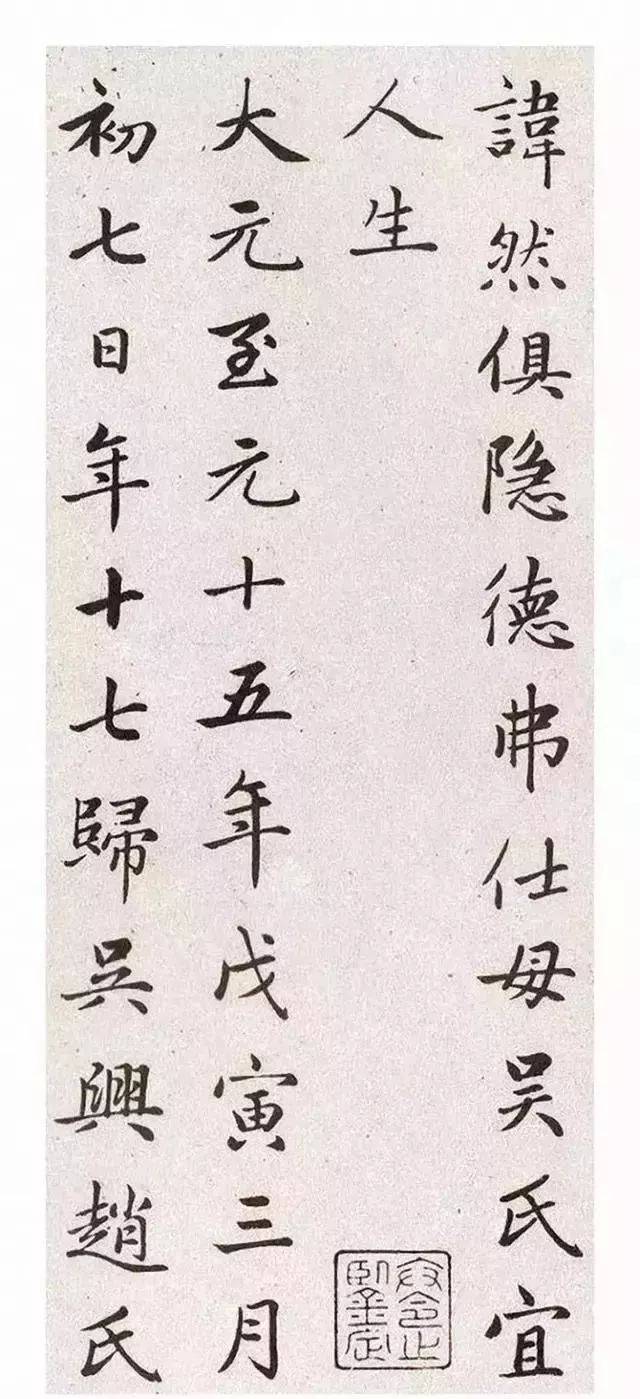 諱然俱隐德弗仕母吴氏宜
人生
大元至元十五年戊寅三月
初七日年十七歸吳興趙氏